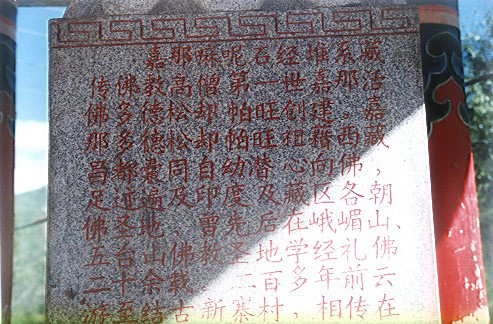 嘉那嘛呢石经堆系藏
传佛教高僧第一世嘉那活
佛多德松却帕旺创建。嘉
那多德松却帕旺祖籍西藏,
昌都囊同自幼潜心向佛,
足迹遍及印度及藏区各朝
佛圣地,曾先后在峨嵋山、
五台山佛教圣地学经礼佛
二十余载。二百多年前云
游至结古新寨村,相传在